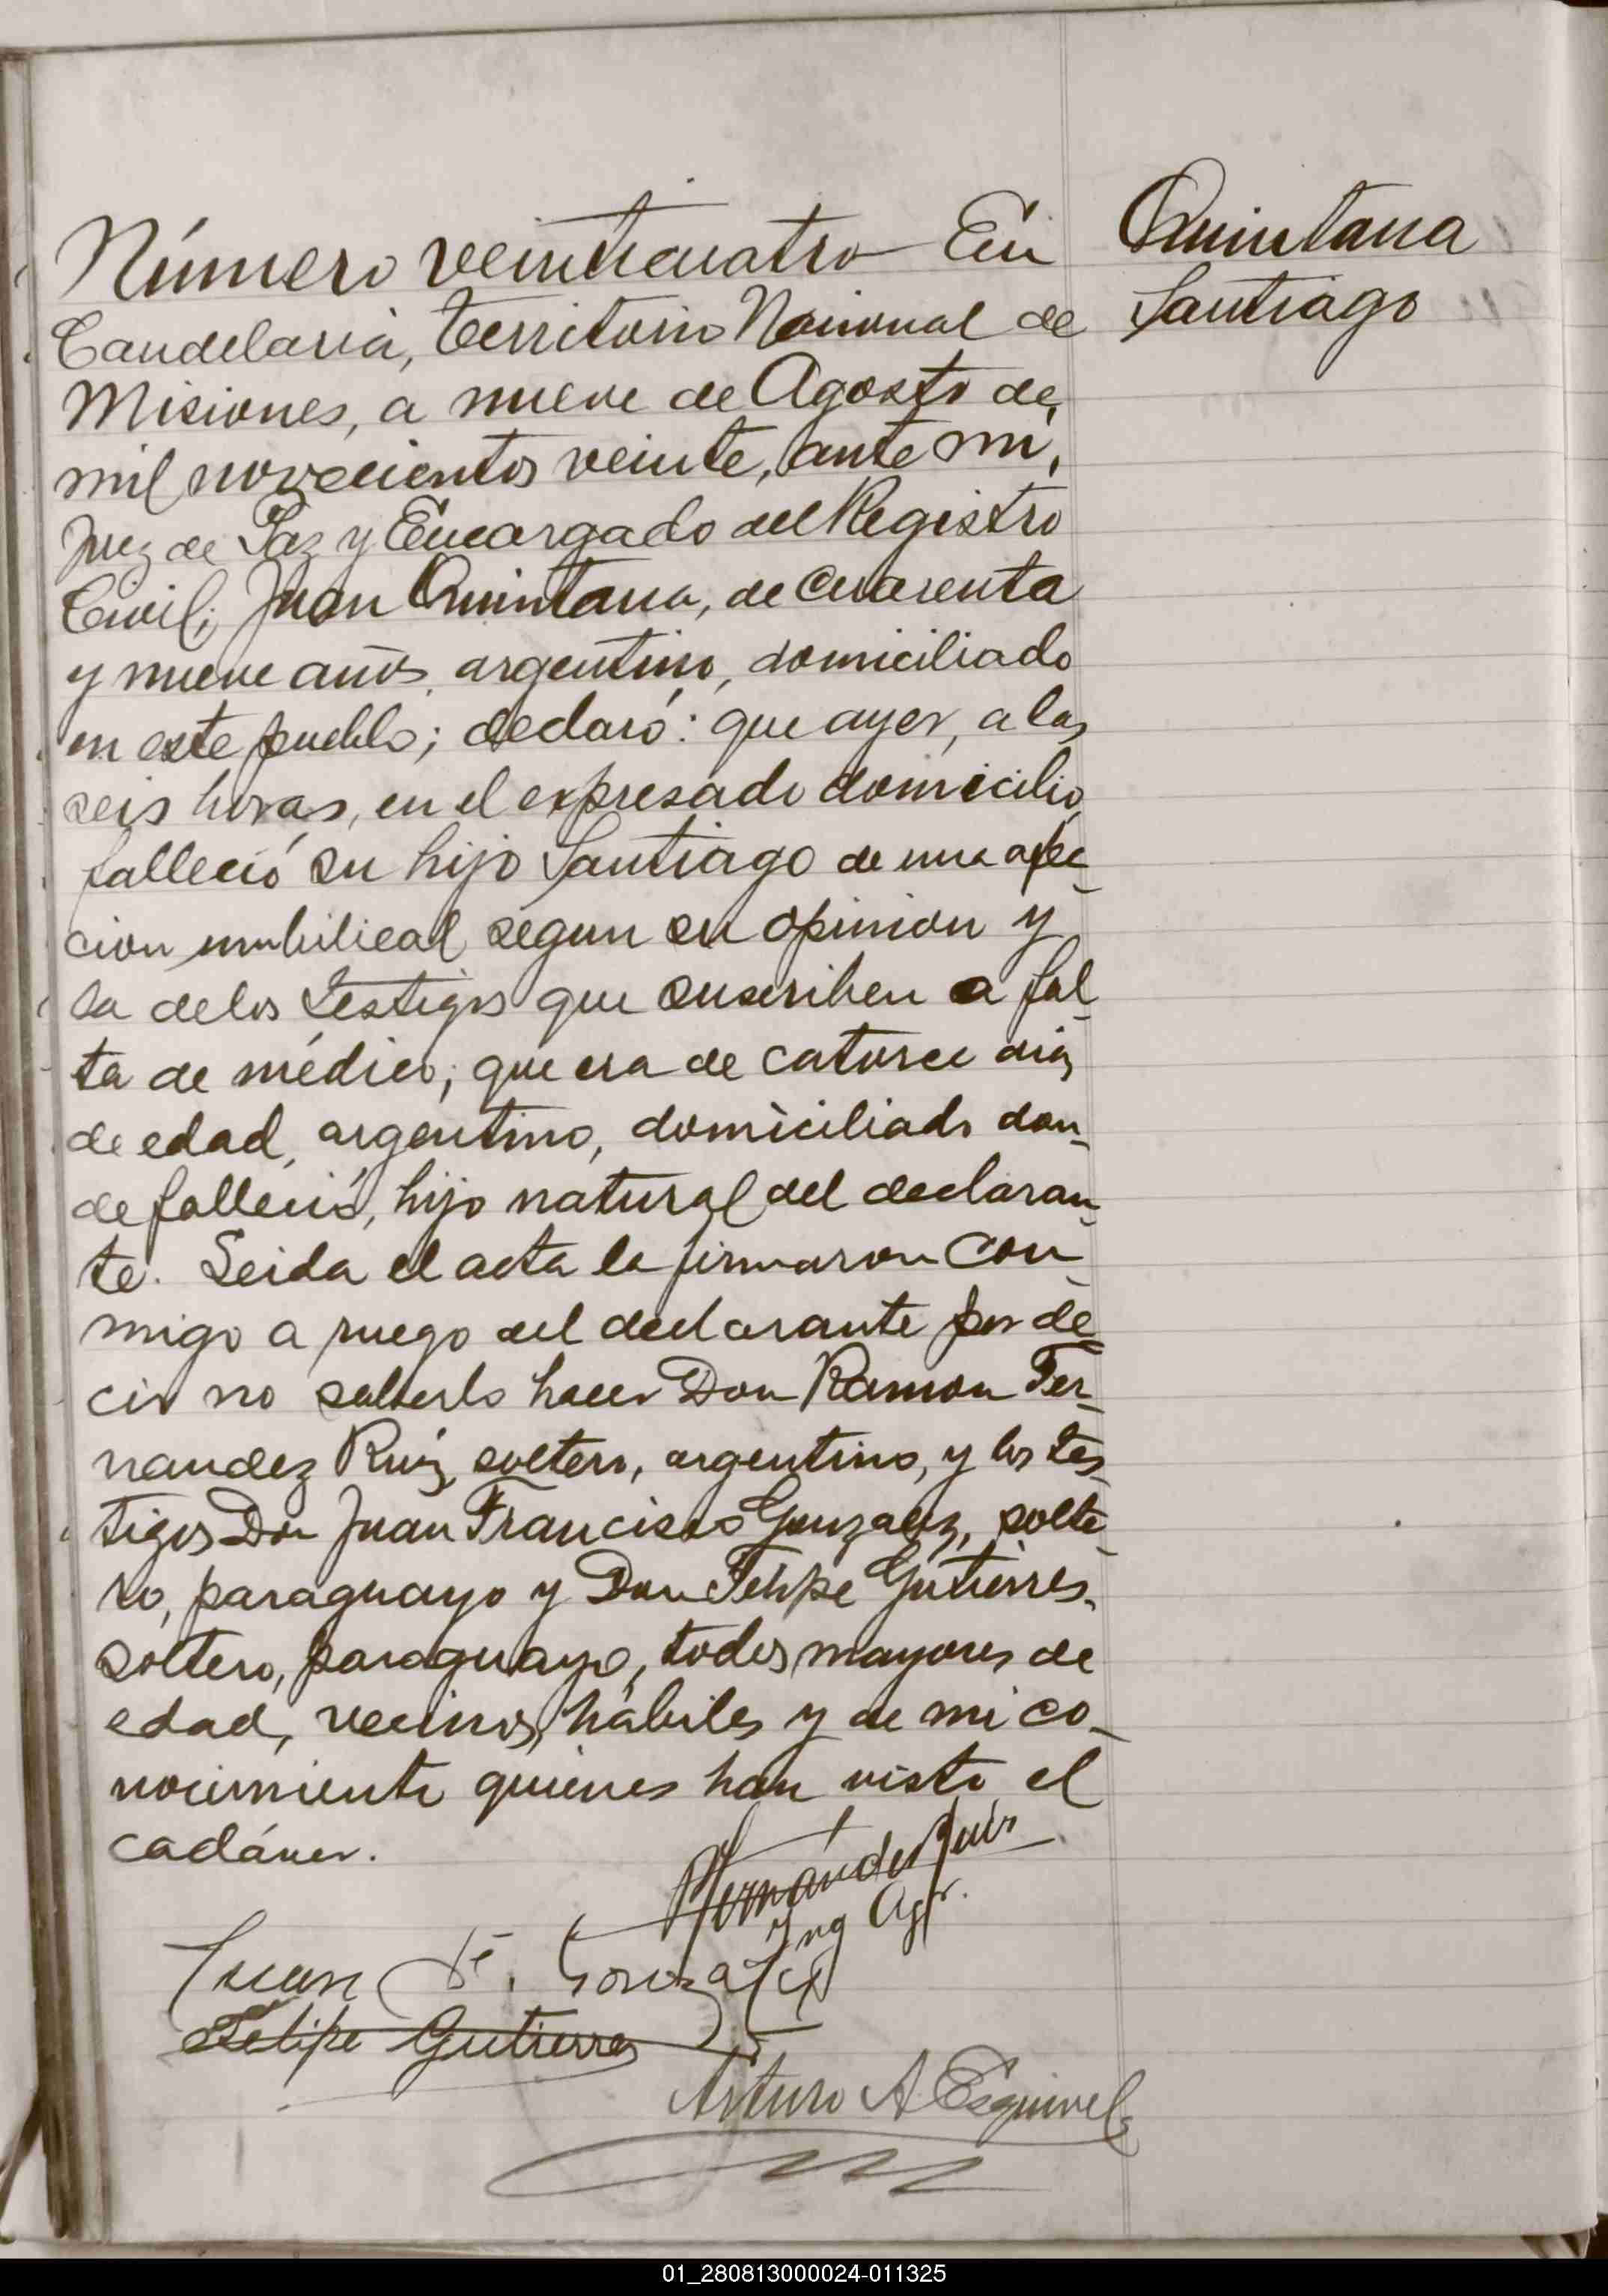 Número veinticuatro En
Candelaria, territorio Nacional de
Misiones, a nueve de Agosto de
mil novecientos veinte, ante mi,
Juez de Paz y Encargado del Registro
Civil; Juan Quintana, de cuarenta
y nueve años, argentino, domiciliado
en este pueblo; declaró: que ayer, a las
seis horas, en el expresado domicilio,
falleció su hijo Santiago de una afec-
cion umbilical segun su opinion y
la de los testigos que suscriben a fal-
ta de médico; que era de catorce dias
de edad, argentino, domiciliado don-
de falleció, hijo natural del declaran-
te. Leida el acta la firmaron con-
migo a ruego del declarante por de-
cir no saberlo hacer Don Ramon Fer-
nandez Ruiz, soltero, argentino, y los tes-
tigos Don Juan Francisco Gonzalez, solte-
ro, paraguayo y Don Felipe Gutierres.
soltero, paraguayo, todos mayores de
edad, vecinos, hábiles y de mi co-
nocimiento quienes han visto el
cadáver.
Quintana
Santiago
RFernández Ruiz
Ing Agr.
Juan F. Gonzalez
Felipe Gutierres
Arturo A. Esquivel
01_280813000024-011325